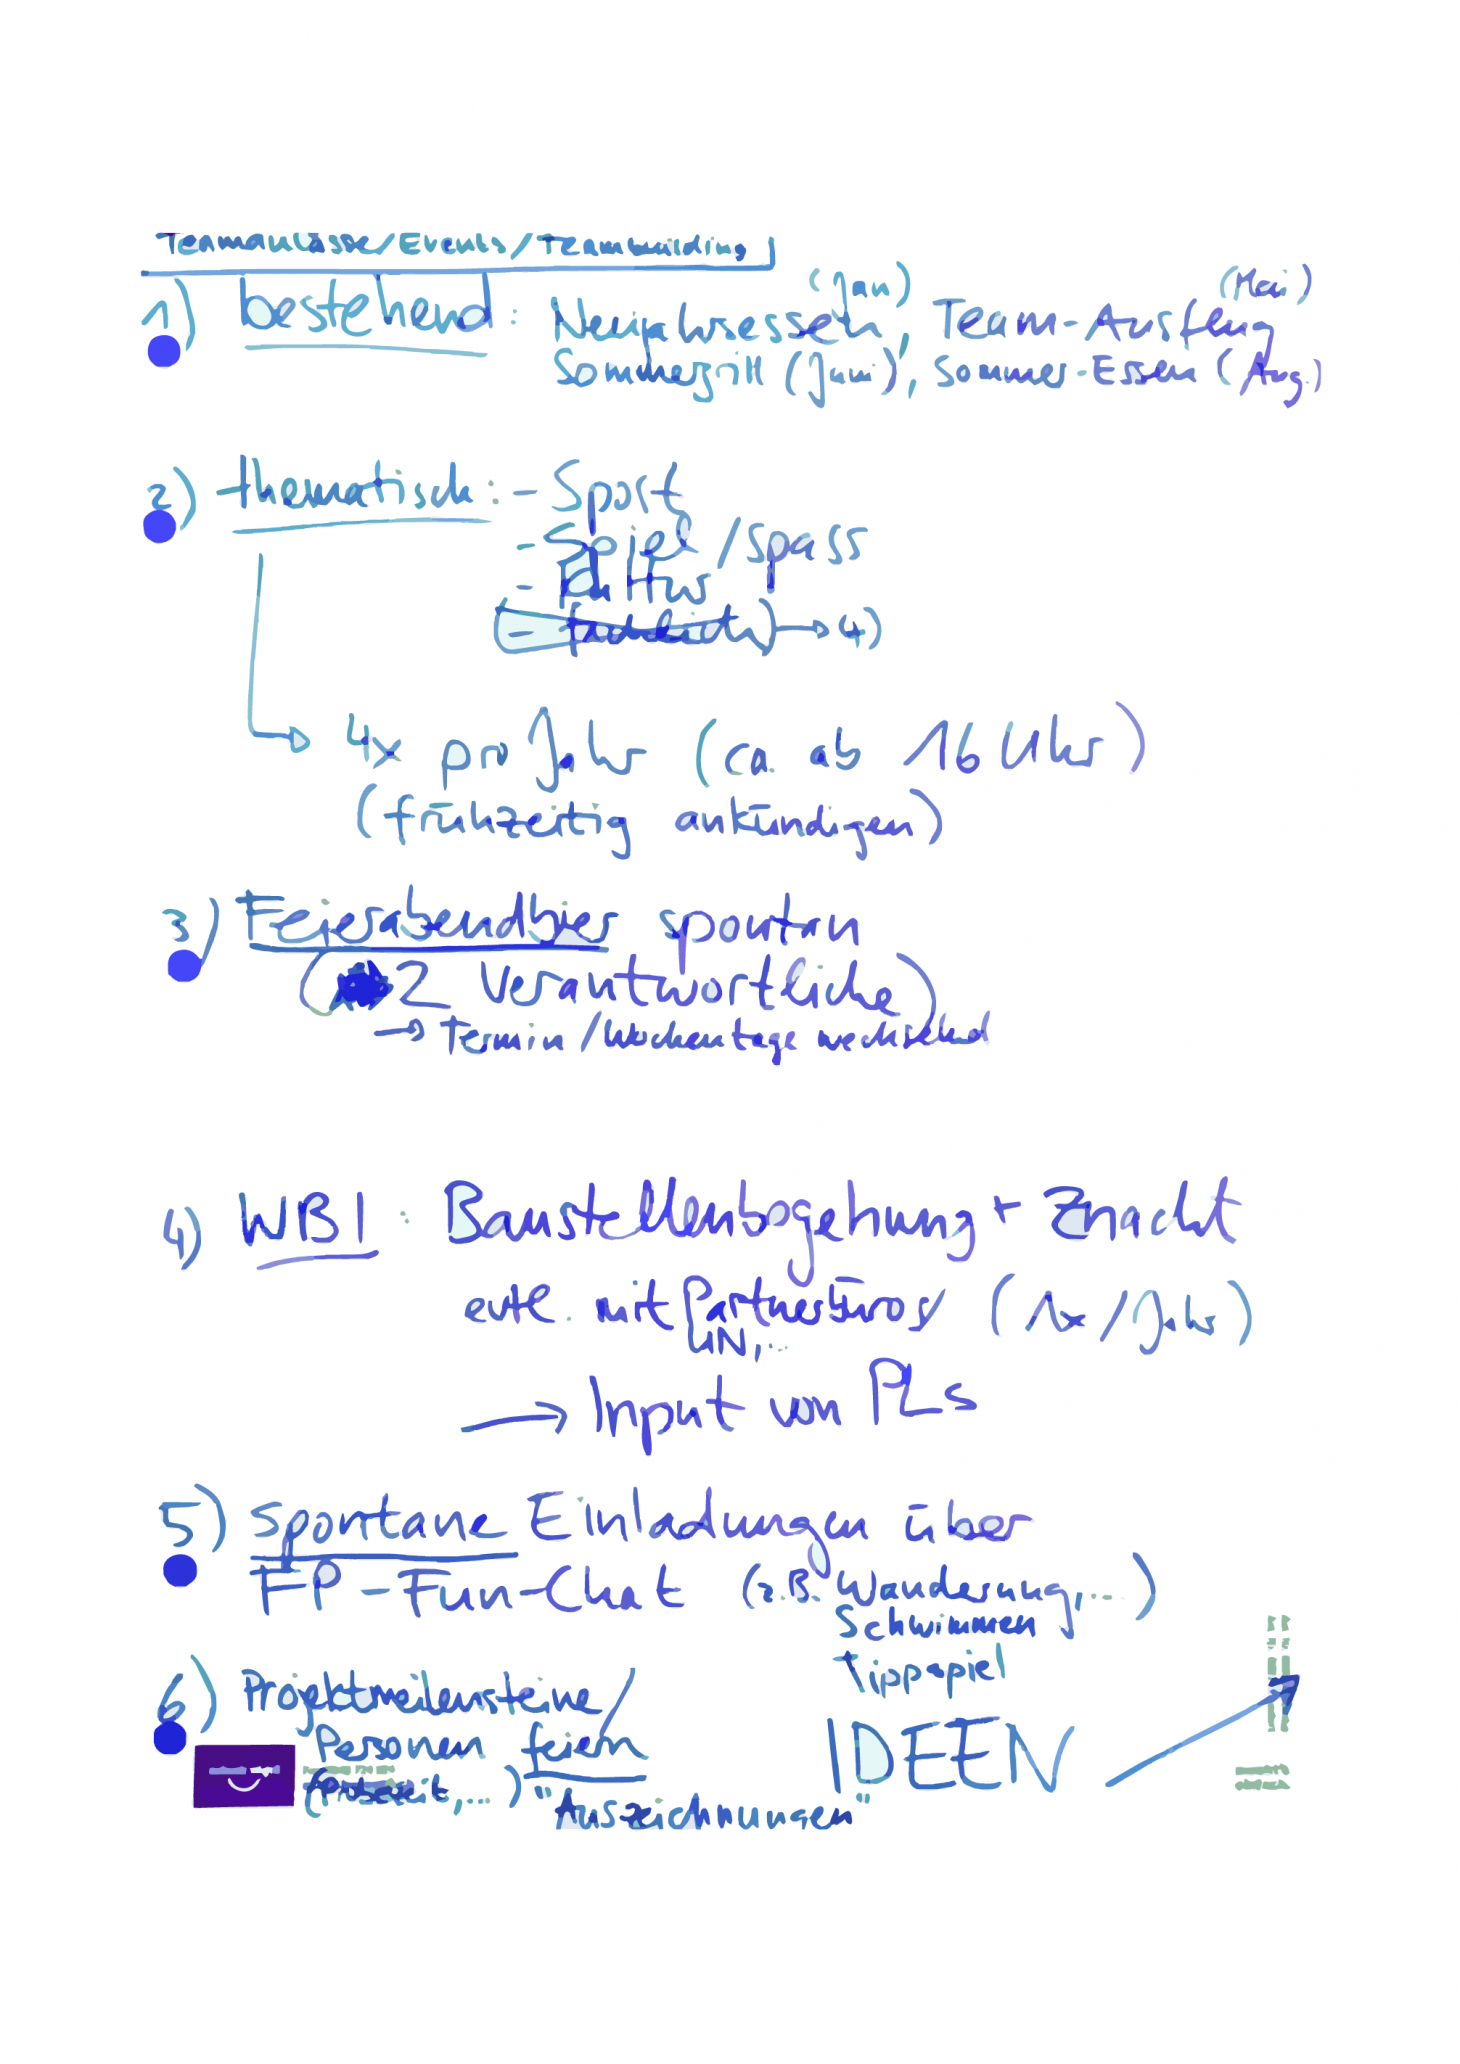 Teamanlässe/Events/Teambuilding
1) bestehend: Neujahrsessen (Jan), Team-Ausflug (Mai)
Sommergrill (Juni), Sommer-Essen (Aug.)
2) thematisch: - Sport
- Spiel/Spass
- Kultur
- fachlich → 4)
→ 4x pro Jahr (ca. ab 16 Uhr)
(frühzeitig ankündigen)
3) Feierabendbier spontan
(2 Verantwortliche)
→ Termin/Wochentage wechselnd
4) WBI: Baustellenbegehung + Znacht
evtl. mit Partnerbüros/ (1x/Jahr)
UN,...
→ Input von PLs
5) spontane Einladungen über
FP-Fun-Chat (z.B. Wanderung,...)
Schwimmen
Tippspiel
6) Projektmeilensteine/
Personen feiern
(Probezeit,...) "Auszeichnungen"
IDEEN